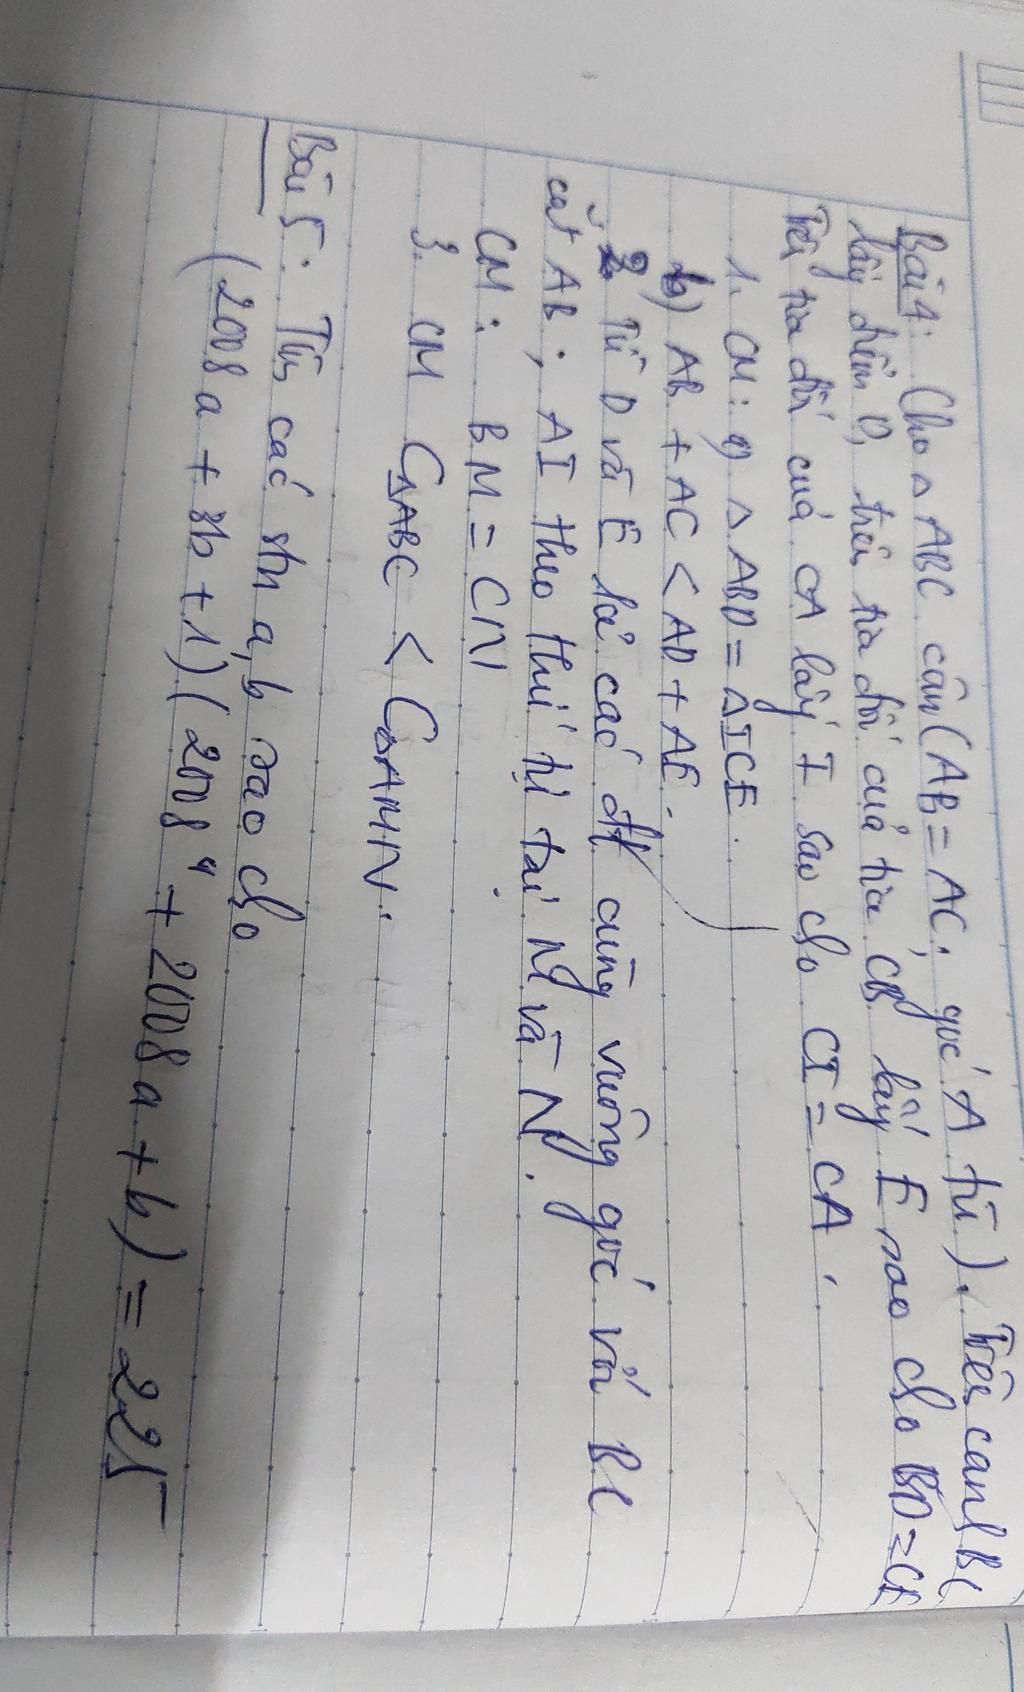 Bài 4: Cho △ ABC cân (AB = AC; góc A tù). Trên cạnh BC
lấy điểm D, trên tia đối của tia CB lấy E sao cho BD = CE
Trên tia đối của CA lấy I sao cho CI = CA.
1. CM: a) △ ABD = △ ICE.
b) AB + AC < AD + AE.
2. Từ D và E kẻ các đt cùng vuông góc với BC
cắt AB; AI theo thứ tự tại M và N.
CM: BM = CN
3. CM C△ABC < C△AMN.
Bài 5: Tìm các stn a, b sao cho
(2008a + 3b + 1)(2008ᵃ + 2008a + b) = 225